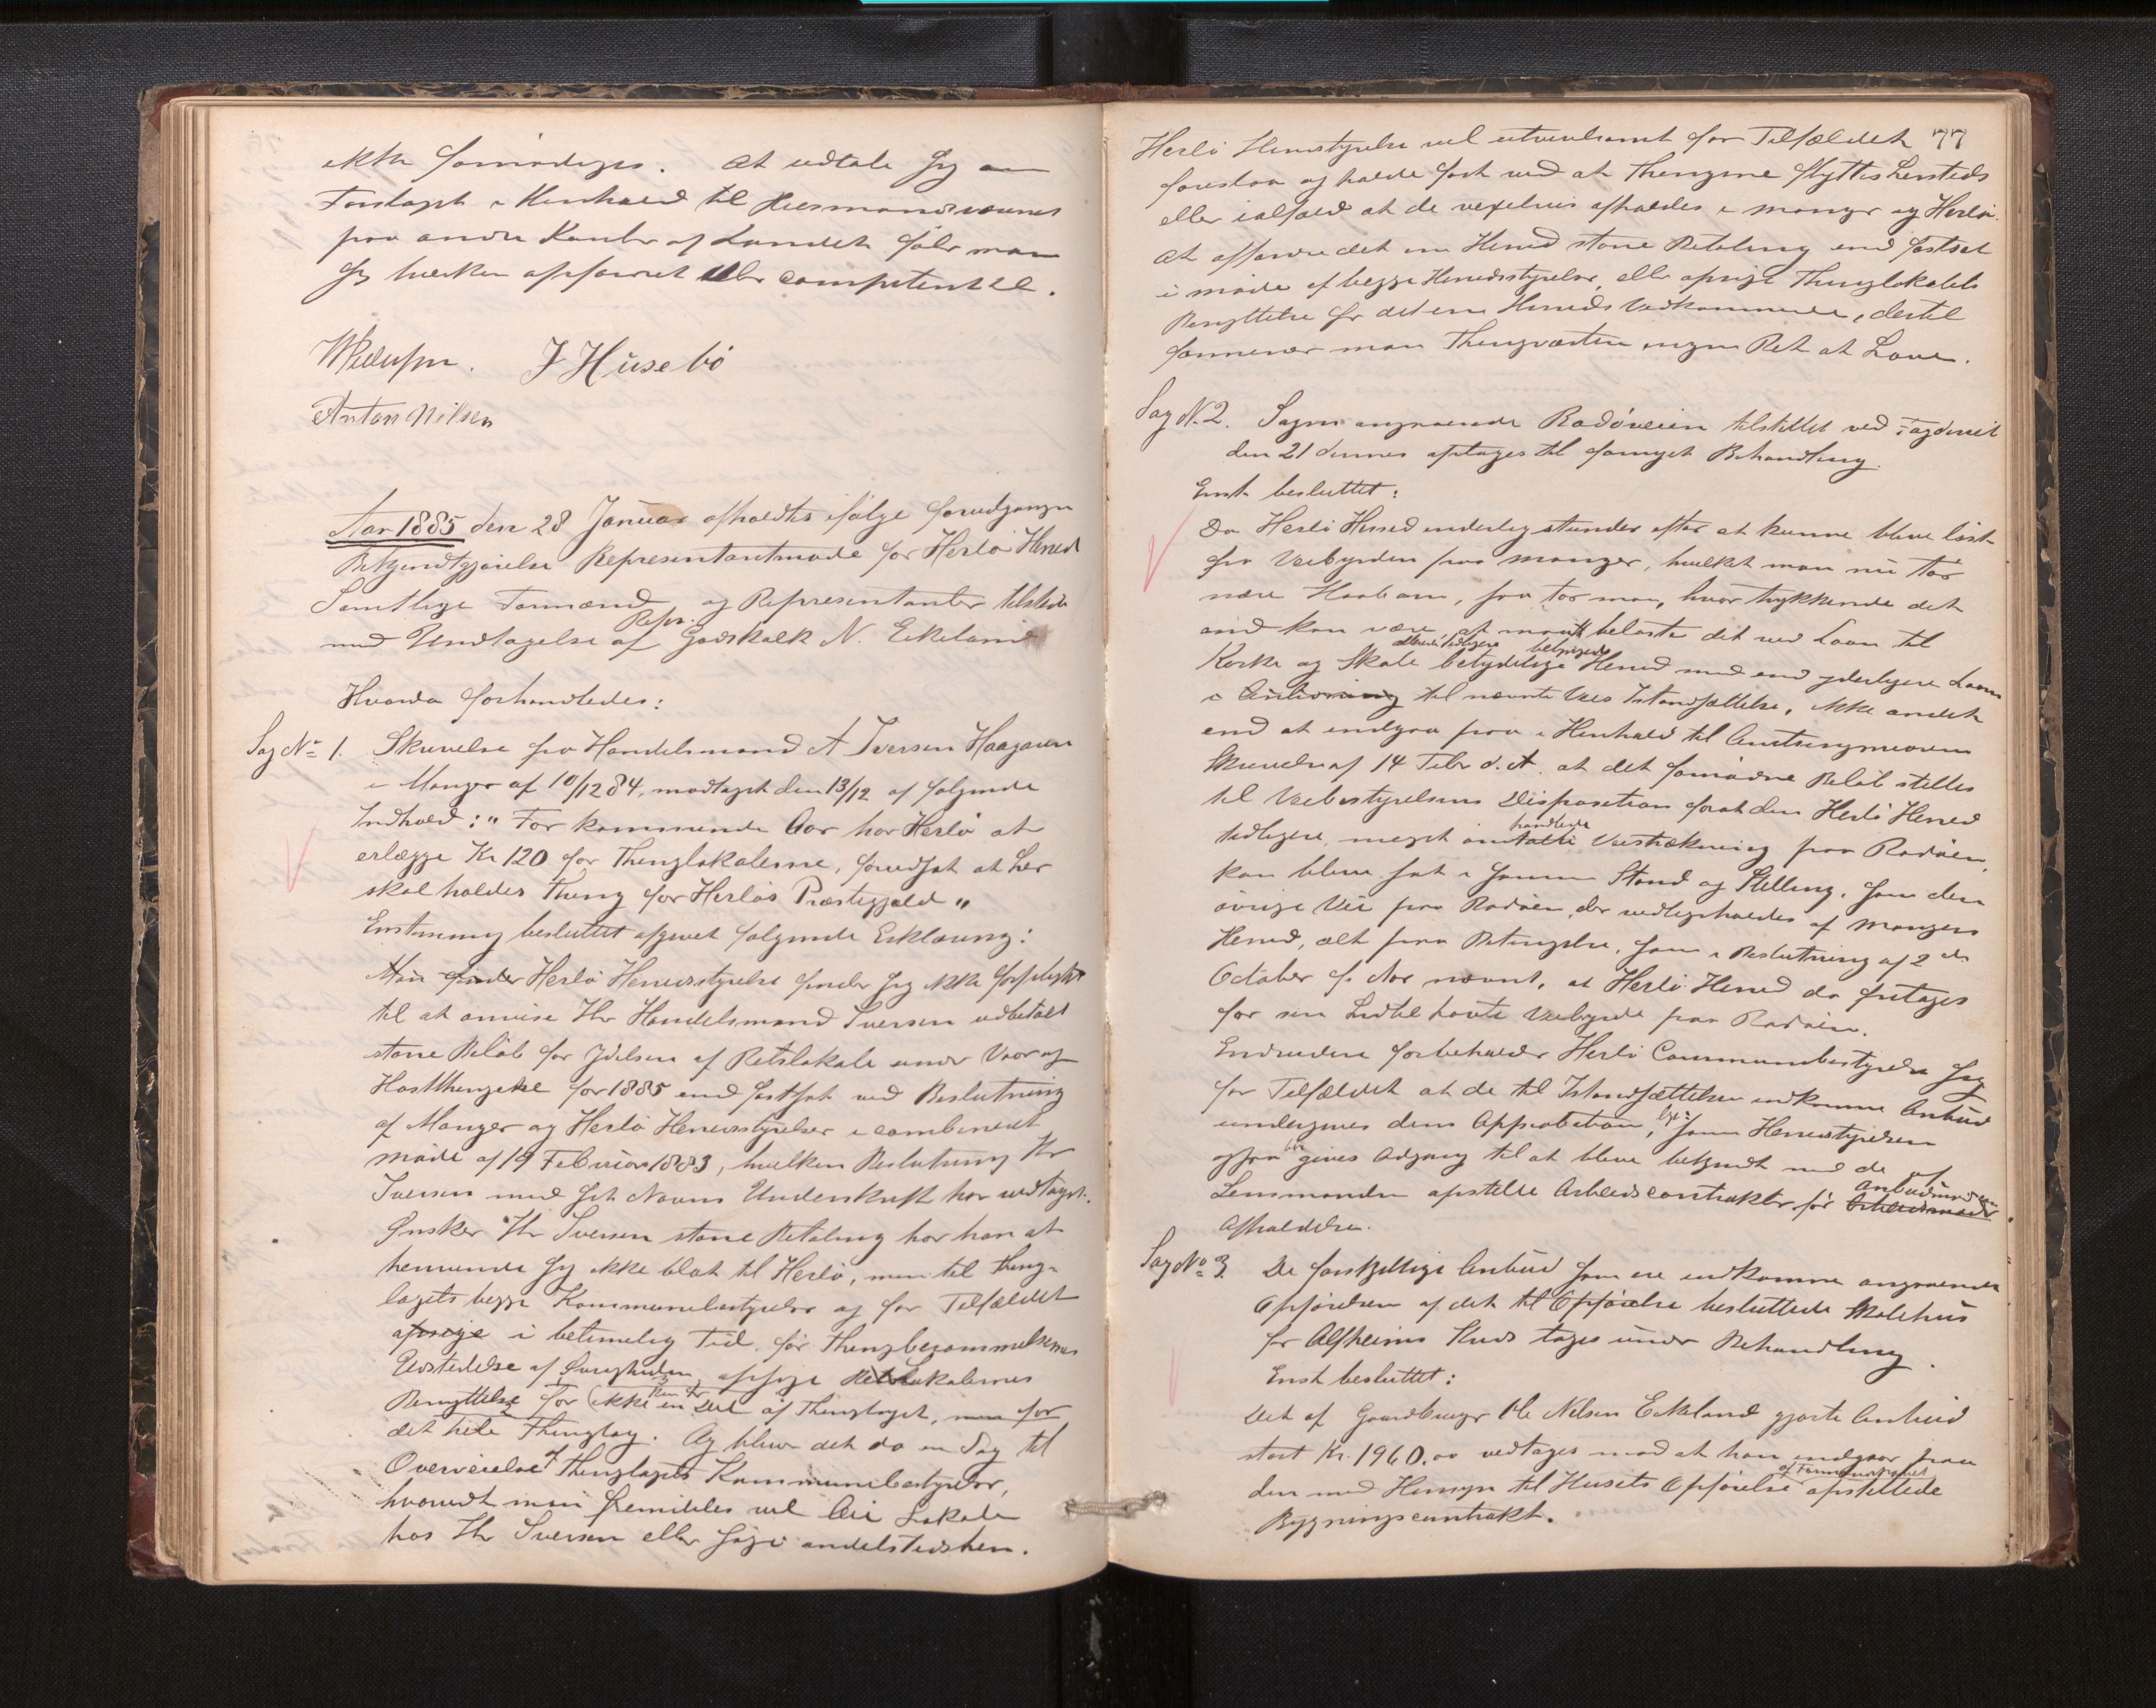 ikke fornødiges. At udtale sig om
Forslaget i Henhold til
paa andre Kanter af Landet føler man
sig hverken opfordret eller competent til.
J Husebö
Anton Nilsen
Aar 1885 den 28 Januar afholdtes ifølge forudgangen
Bekjendtgjørelse Repræsentantmøde for Herlø Hered
Samtlige Formænd og Repræsentanter tilstede
Repr.
med Undtagelse af Godskalk N. Eikeland
Hvorda forhandledes:
Sag No 1. Skrivelse fra Handelsmand A Iversen Haagaven
i Manger af 10/12 84, modtaget den 13/12 af følgende
Indhold: "For kommende Aar har Herlø at
erlægge Kr 120 for Thinglokalerne, forudsat at her
skal holdes Thing for Herløs Præstegjæld"
Enstemmig besluttet afgivet følgende Erklæring:
Man finder Herlø Heredsstyrelse finder sig ikke forpligtet
til at anvise Hr Handelsmand Iversen udbetalt
større Beløb for Ydelsen af Retslokale under Vaar og
Høstthingene for 1885 end fastsat ved Beslutning
af Manger og Herlø Heredsstyrelser i combineret
møde af 19 Februar 1883, hvilken Beslutning Hr
Iversen med sit Navns Underskrift har vedtaget.
Ønsker Hr Iversen større Betaling har han at
henvende sig ikke blot til Herlø, men til Thing-
lagets begge Kommunebestyrelser og for Tilfældet
opsige i betimelig Tid, før Thingberammelsernes
Udstedelse af Øvrigheden, opsige Retslokalernes
Benyttelse for (ikke en Deel af Thinglaget, men for
det hele Thinglag. Og bliver det da en Sag til
Overveielse af Thinglagets Kommunebestyrelser,
hvorvidt man fremdeles vil leie Lokale
hos Hr Iversen eller søge andetstedshen.
77
Herlø Heredsstyrelse vil utvivlsomt for Tilfældet
foreslaa og holde fast ved at Thingene flyttes hersteds
eller ialfald at de vexelvis afholdes i Manger og Herlø.
At affordre det ene Hered større Betaling end fastsat
i møde af begge Heredsstyrelser, eller opsige Thinglokalets
Benyttelse for det ene Hereds Vedkommende, dertil
formener man Thingværten ingen Ret at have.
Sag N. 2. Sagen angaaende Radøveien tilstillet ved Fogderiet
den 21 dennes optages til fornyet Behandling.
Enst besluttet:
Da Herlø Hered inderlig stunder efter at kunne blive løst
fra Veibyrden paa Manger, hvilket man nu tør
nære Haab om, saa tør man, hvor trykkende det
end kan være at maatte belaste dit ved Laan til
allerede tidligere bebyrdede
Kirke og Skole betydelige Hered med end yderligere Laan
i Anledning til nævnte Veis Istandsættelse, ikke andet
end at indgaa paa i Henhold til Amtsingeniørens
Skrivelse af 14 Febr d. A. at det fornødne Beløb stilles
til Veibestyrelsens Disposition forat den Herlø Hered
handlede
tidligere meget omtalte Veistrækning paa Radøen,
kan blive sat i samme Stand og Stilling, som den
øvrige Vei paa Radøen, der vedligeholdes af Mangers
Hered, alt paa Betingelse, som i Beslutning af 2den
October f. Aar nævnt, at Herlø Hered da fritages
for sin hidtil havte Veibyrde paa Radøen.
Endvidere forbeholder Herlø Communebestyrelse sig
for Tilfældet at de til Istandsættelsen indkomne Anbud
undergives dens Approbation, ligesom Heredsstyrelsen
ogsaa bør gives Adgang til at blive bekjendt med de af
Lensmanden opstillede Arbeidscontrakter før Anbudsmødernes
Afholdelse.
Sag No 3. De forskjellige Anbud som ere indkomne angaaende
Opførelsen af det til Opførelse besluttede Skolehus
for Alfheims Kreds toges under Behandling.
Enst besluttet:
Det af Gaardbruger Ole Nilsen Eikeland gjorte Anbud
stort Kr. 1960.00 vedtages mod at han indgaar paa
af Formandskabet
den med Hensyn til Husets Opførelse opstillede
Bygningscontrakt.